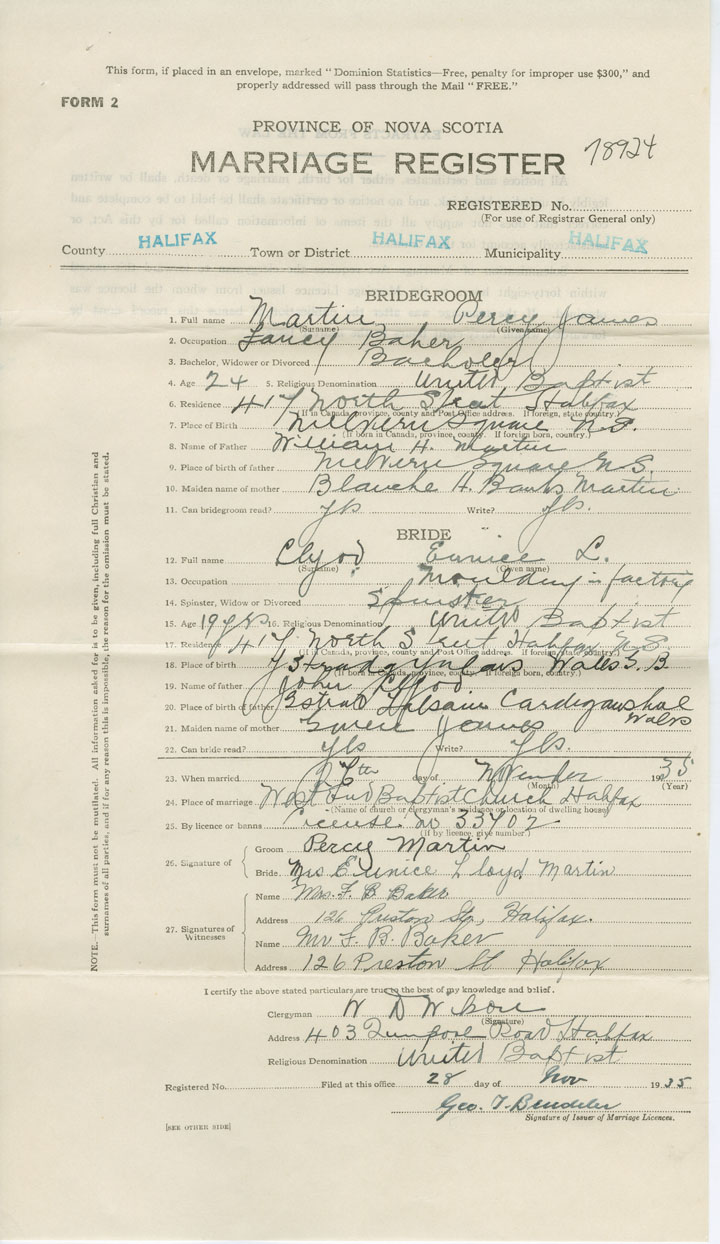 This form, if placed in an envelope, marked "Dominion Statistics—Free, penalty for improper use $300," and
properly addressed will pass through the Mail "FREE."
FORM 2
PROVINCE OF NOVA SCOTIA
MARRIAGE REGISTER 78924
REGISTERED No.
(For use of Registrar General only)
County HALIFAX Town or District HALIFAX Municipality HALIFAX
BRIDEGROOM
1. Full name Martin Percy James
(Surname) (Given name)
2. Occupation Fancy Baker
3. Bachelor, Widower or Divorced Bacholer
4. Age 24 5. Religious Denomination United Baptist
6. Residence 417 North Street Halifax
(If in Canada, province, county and Post Office address. If foreign, state country.)
7. Place of Birth Square N.S.
(If born in Canada, province, county. If foreign born, country.)
8. Name of Father William H. Martin
9. Place of birth of father Square N.S.
10. Maiden name of mother Blanche H. Banks Martin
11. Can bridegroom read? yes Write? yes.
BRIDE
12. Full name Eunice L.
(Surname) (Given name)
13. Occupation Moulding in factory
14. Spinster, Widow or Divorced Spinster
15. Age 19 yrs 16. Religious Denomination United Baptist
17. Residence 417 North Street Halifax N.S
(If in Canada, province, county and Post Office address. If foreign, state country.)
18. Place of birth Wales G. B.
(If born in Canada, province, county. If foreign born, country.)
19. Name of father John
20. Place of birth of father Wales
21. Maiden name of mother James
22. Can bride read? yes Write? yes.
23. When married 27th day of November 1935
(Month) (Year)
24. Place of marriage West End Baptist Church Halifax
(Name of church or clergyman's residence or location of dwelling house)
25. By licence or banns License no 33702
(If by licence, give number.)
26. Signature of
Groom Percy Martin
Bride Mrs Eunice Lloyd Martin
27. Signatures of Witnesses
Name Mrs. F. B. Baker
Address 126 Preston St., Halifax.
Name Mr F. B. Baker
Address 126 Preston St Halifax
I certify the above stated particulars are true to the best of my knowledge and belief.
Clergyman W D Wilson
(Signature)
Address 403 Road Halifax
Religious Denomination United Baptist
Registered No. Filed at this office 28 day of Nov 1935
Geo. T.
Signature of Issuer of Marriage Licences.
[SEE OTHER SIDE]
NOTE.—This form must not be mutilated. All information asked for is to be given, including full Christian and
surnames of all parties, and if for any reason this is impossible, the reason for the omission must be stated.